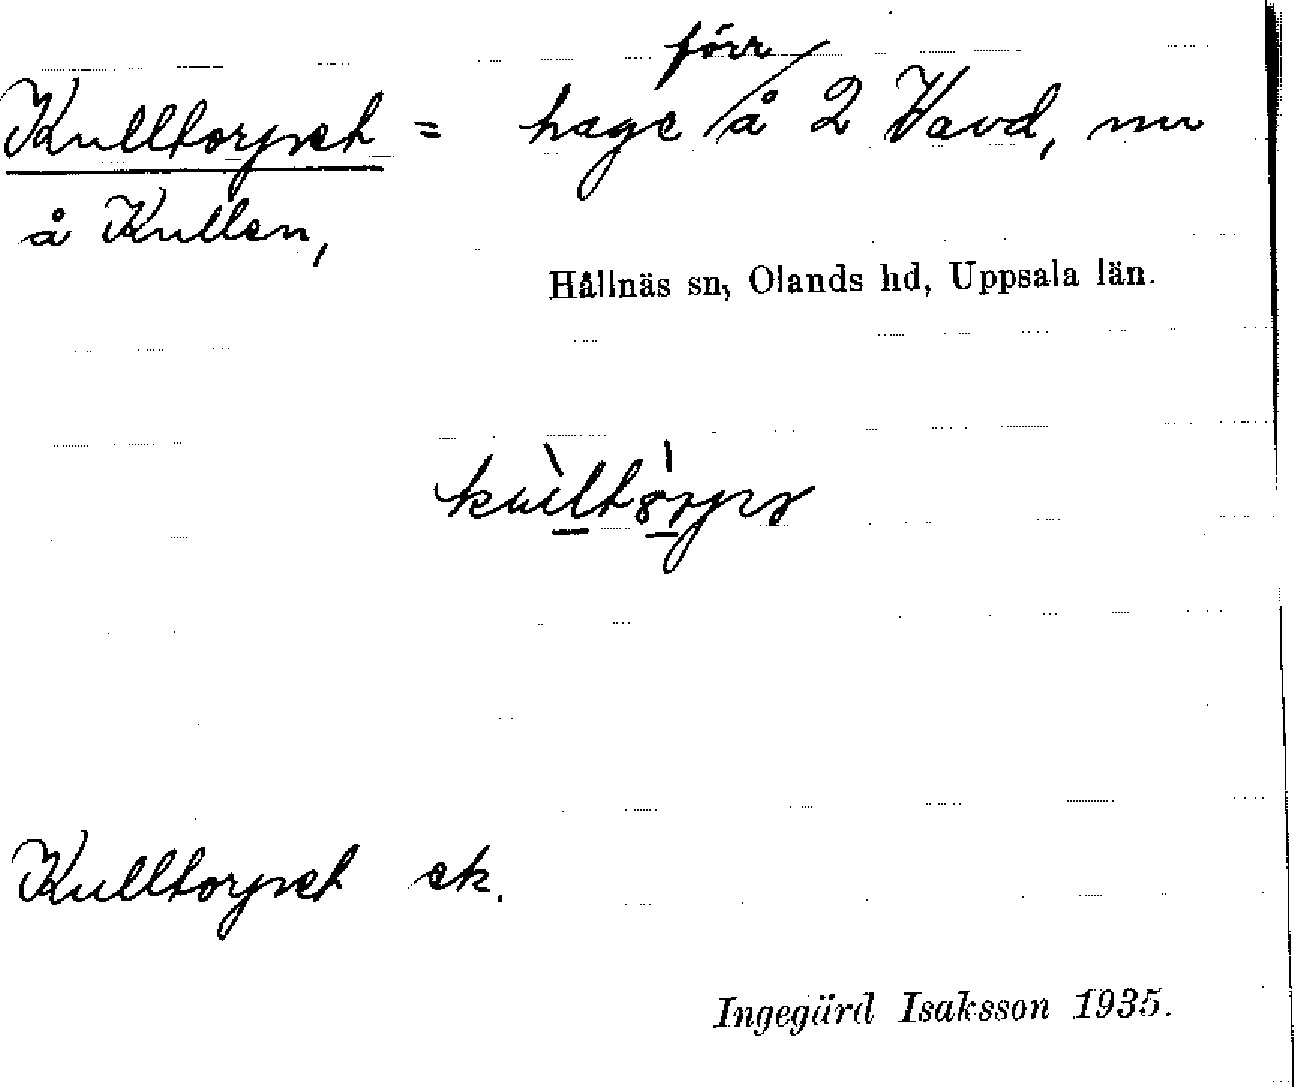 förr
Kulltorpet = hage / å 2 Vavd, nu
å Kullen,
Hållnäs sn, Olands hd, Uppsala län.
Kulltorpet ek.
Ingegärd Isaksson 1935.